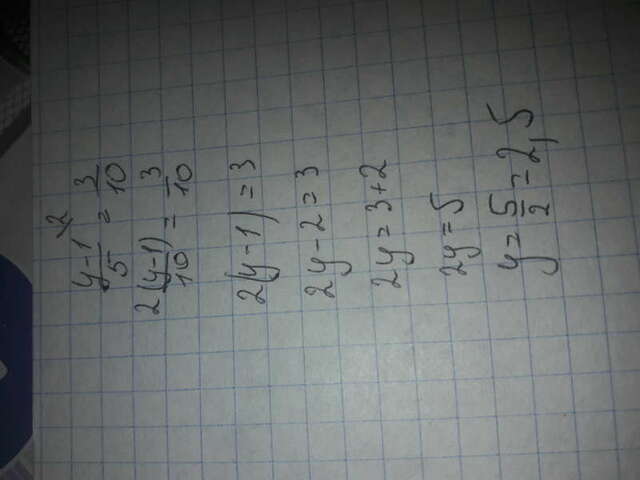 \frac{y-1}{5}^{\backslash 2} = \frac{3}{10}
\frac{2(y-1)}{10} = \frac{3}{10}
2(y-1)=3
2y-2=3
2y=3+2
2y=5
y=\frac{5}{2}=2,5